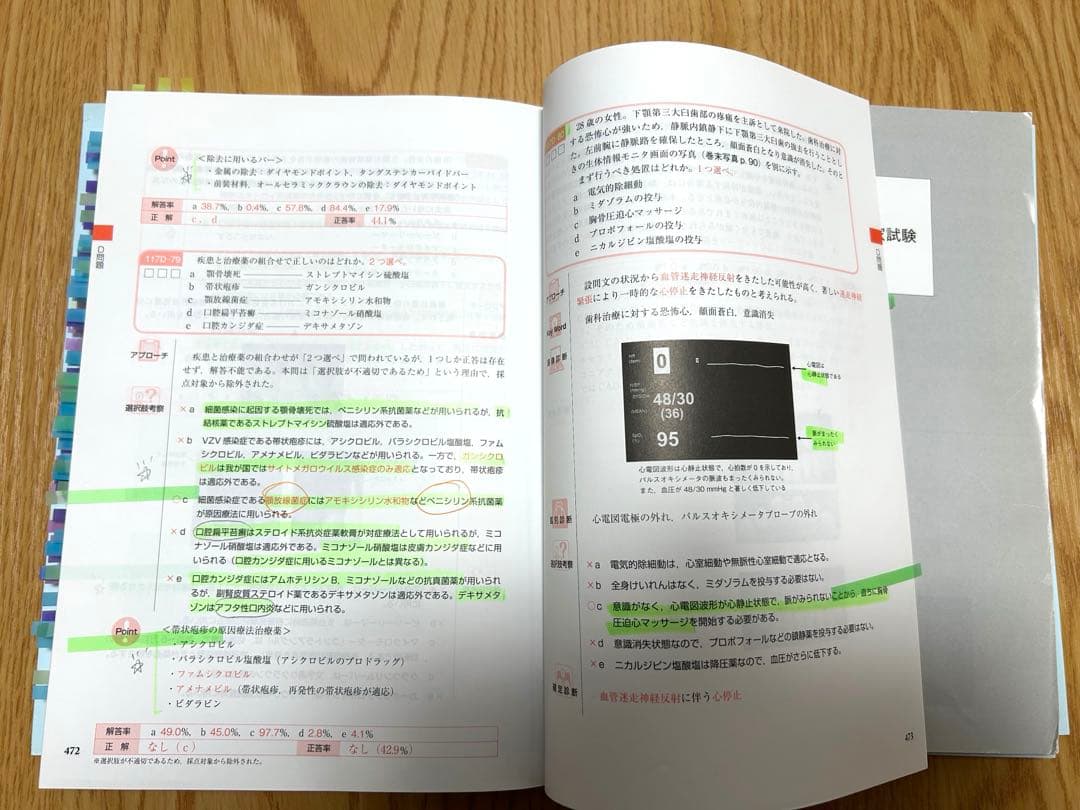 Point
<除去に用いるバー>
・金属の除去：ダイヤモンドポイント、タングステンカーバイドバー
・前装材料、オールセラミッククラウンの除去：ダイヤモンドポイント
解答率 a 38.7%, b 0.4%, c 57.8%, d 84.4%, e 17.9%
正解 c, d 正答率 44.1%
D問題
117D-79 疾患と治療薬の組合せで正しいのはどれか。2つ選べ。
a 顎骨壊死 ―― ストレプトマイシン硫酸塩
b 帯状疱疹 ―― ガンシクロビル
c 顎放線菌症 ―― アモキシシリン水和物
d 口腔扁平苔癬 ―― ミコナゾール硝酸塩
e 口腔カンジダ症 ―― デキサメタゾン
アプローチ
疾患と治療薬の組合わせが「2つ選べ」で問われているが、1つしか正答は存在
せず、解答不能である。本問は「選択肢が不適切であるため」という理由で、採
点対象から除外された。
選択肢考察
×a 細菌感染に起因する顎骨壊死では、ペニシリン系抗菌薬などが用いられるが、抗
結核薬であるストレプトマイシン硫酸塩は適応外である。
×b VZV 感染症である帯状疱疹には、アシクロビル、バラシクロビル塩酸塩、ファム
シクロビル、アメナメビル、ビダラビンなどが用いられる。一方で、ガンシクロ
ビルは我が国ではサイトメガロウイルス感染症のみ適応となっており、帯状疱疹
は適応外である。
○c 細菌感染症である顎放線菌症にはアモキシシリン水和物などペニシリン系抗菌薬
が原因療法に用いられる。
×d 口腔扁平苔癬はステロイド系抗炎症薬軟膏が対症療法として用いられるが、ミコ
ナゾール硝酸塩は適応外である。ミコナゾール硝酸塩は皮膚カンジダ症などに用い
られる（口腔カンジダ症に用いるミコナゾールとは異なる）。
×e 口腔カンジダ症にはアムホテリシン B、ミコナゾールなどの抗真菌薬が用いられ
るが、副腎皮質ステロイド薬であるデキサメタゾンは適応外である。デキサメタ
ゾンはアフタ性口内炎などに用いられる。
Point
<帯状疱疹の原因療法治療薬>
・アシクロビル
・バラシクロビル塩酸塩（アシクロビルのプロドラッグ）
・ファムシクロビル
・アメナメビル（帯状疱疹、再発性の帯状疱疹が適応）
・ビダラビン
解答率 a 49.0%, b 45.0%, c 97.7%, d 2.8%, e 4.1%
正解 なし（c） 正答率 なし（42.9%）
472
※選択肢が不適切であるため、採点対象から除外された。
28 歳の女性。下顎第三大臼歯部の疼痛を主訴として来院した。歯科治療に対
する恐怖心が強いため、静脈内鎮静下に下顎第三大臼歯の抜去を行うこととし
た。左前腕に静脈路を確保したところ、顔面蒼白となり意識が消失した。そのと
きの生体情報モニタ画面の写真（巻末写真 p. 90）を別に示す。
まず行うべき処置はどれか。1つ選べ。
a 電気的除細動
b ミダゾラムの投与
c 胸骨圧迫心マッサージ
d プロポフォールの投与
e ニカルジピン塩酸塩の投与
D問題
アプローチ
設問文の状況から血管迷走神経反射をきたした可能性が高く、著しい迷走神経
緊張により一時的な心停止をきたしたものと考えられる。
Key Word
歯科治療に対する恐怖心、顔面蒼白、意識消失
画像診断
0
48/30
(36)
95
心電図は
心静止状態である
脈がまったく
みられない
心電図波形は心静止状態で、心拍数が 0 を示しており、
パルスオキシメータの脈波もまったくみられない。
また、血圧が 48/30 mmHg と著しく低下している
鑑別診断
心電図電極の外れ、パルスオキシメータプローブの外れ
選択肢考察
×a 電気的除細動は、心室細動や無脈性心室細動で適応となる。
×b 全身けいれんはなく、ミダゾラムを投与する必要はない。
○c 意識がなく、心電図波形が心静止状態で、脈がみられないことから、直ちに胸骨
圧迫心マッサージを開始する必要がある。
×d 意識消失状態なので、プロポフォールなどの鎮静薬を投与する必要はない。
×e ニカルジピン塩酸塩は降圧薬なので、血圧がさらに低下する。
確定診断
血管迷走神経反射に伴う心停止
473
試験